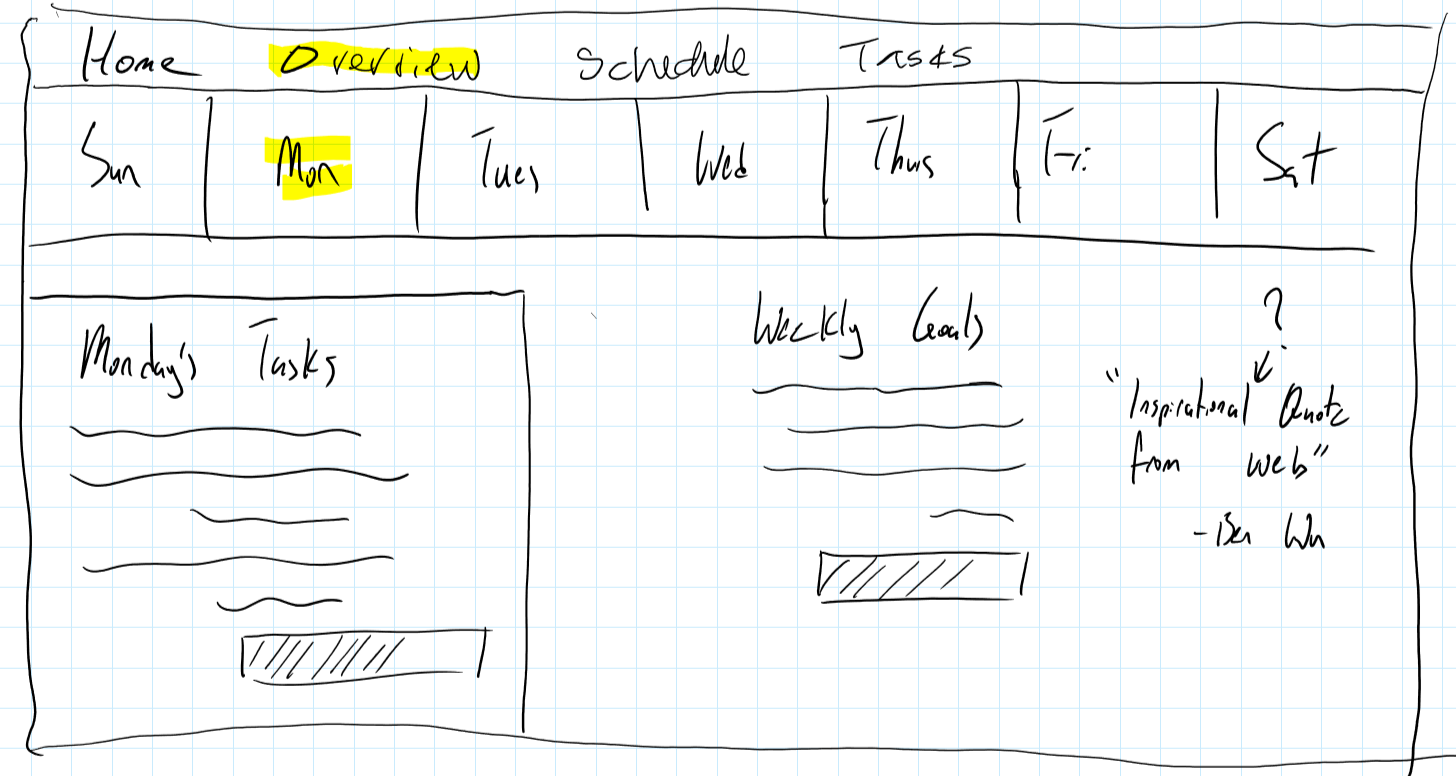 Home Overview Schedule Tasks
Sun Mon Tues Wed Thurs Fri Sat
Monday's Tasks
Weekly Goals
?
"Inspirational Quote
from web"